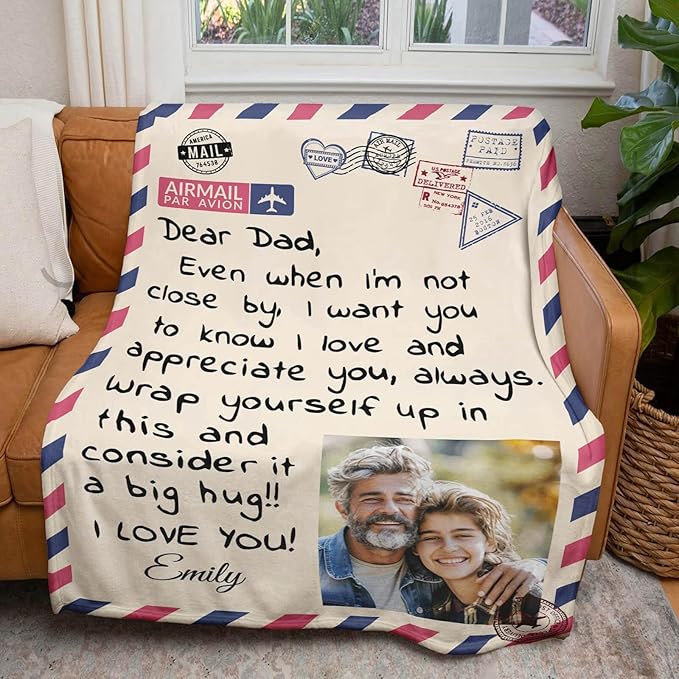 AMERICA
MAIL
764538
LOVE
AIR MAIL
POSTAGE
PAID
U.S. POSTAGE
DELIVERED
NEW YORK
R
25 FEB
2016
BOSTON
AIRMAIL
PAR AVION
Dear Dad,
Even when I'm not
close by, I want you
to know I love and
appreciate you, always.
Wrap yourself up in
this and
consider it
a big hug!!
I LOVE YOU!
Emily